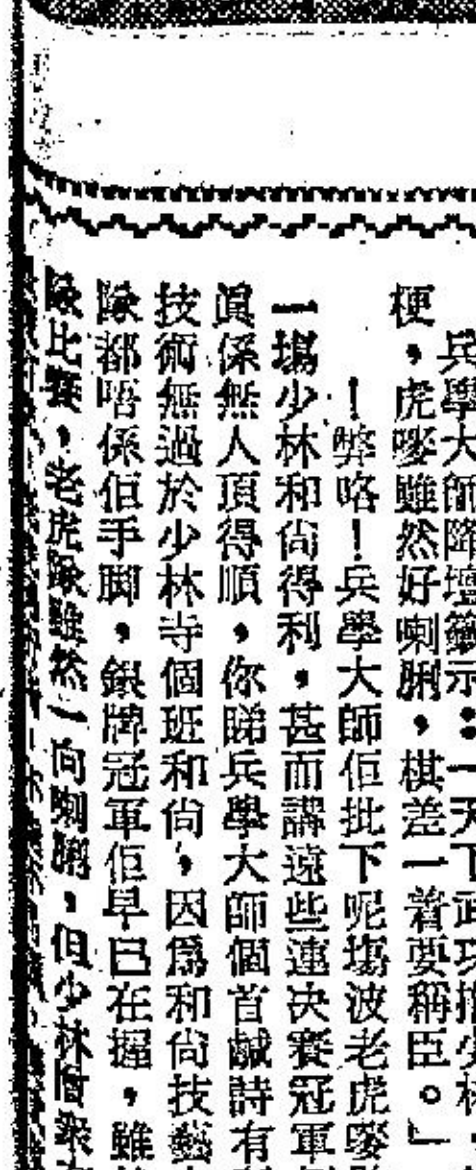 兵學大師降壇籤示：一天下武功推少林，
梗，虎嘜雖然好喇脷，棋差一着要稱臣。」
！弊咯！兵學大師佢批下呢塲波老虎嘜
一塲少林和尙得利，甚而講遠些連決賽冠軍
眞係無人頂得順，你睇兵學大師個首鹹詩有
技術無過於少林寺個班和尙，因爲和尙技藝
隊都唔係佢手脚，銀牌冠軍佢早已在握，雖
隊比賽，老虎隊雖然一向喇脷，但少林僧衆